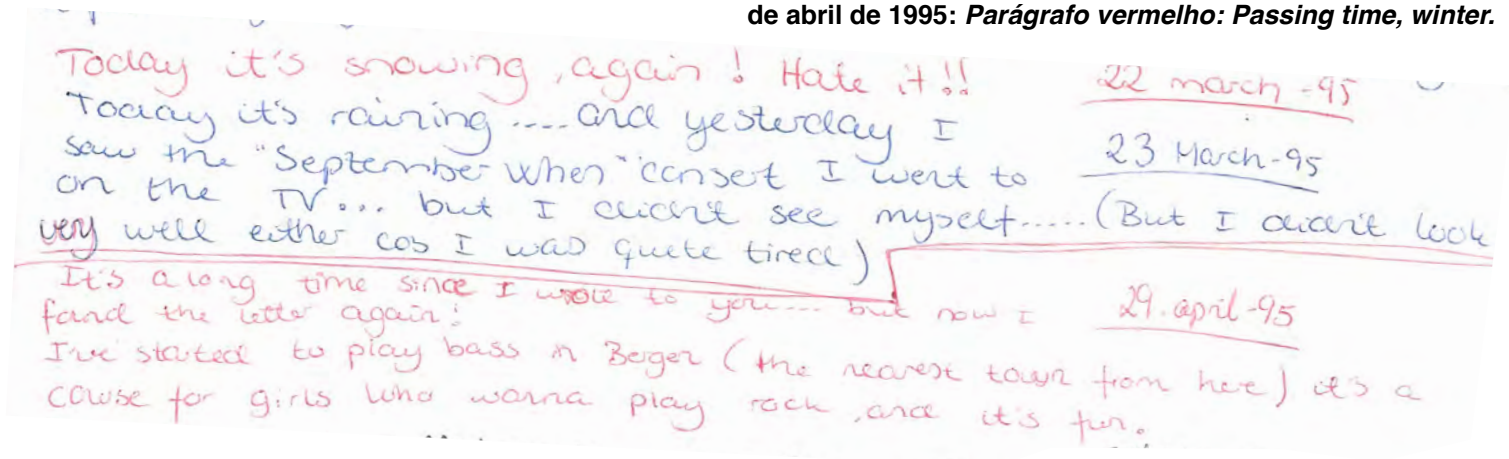 de abril de 1995: Parágrafo vermelho: Passing time, winter.
Today it's snowing, again! Hate it!! 22 march -95
Today it's raining .... and yesterday I 23 March-95
saw the "September When" consert I went to
on the TV... but I didn't see myself.....(But I didn't look
very well either cos I was quete tired)
It's a long time since I wrote to you... but now I 29. april-95
fand the letter again!
I've started to play bass in Bergen (the nearest town from here) it's a
course for girls who wanna play rock, and it's fun.